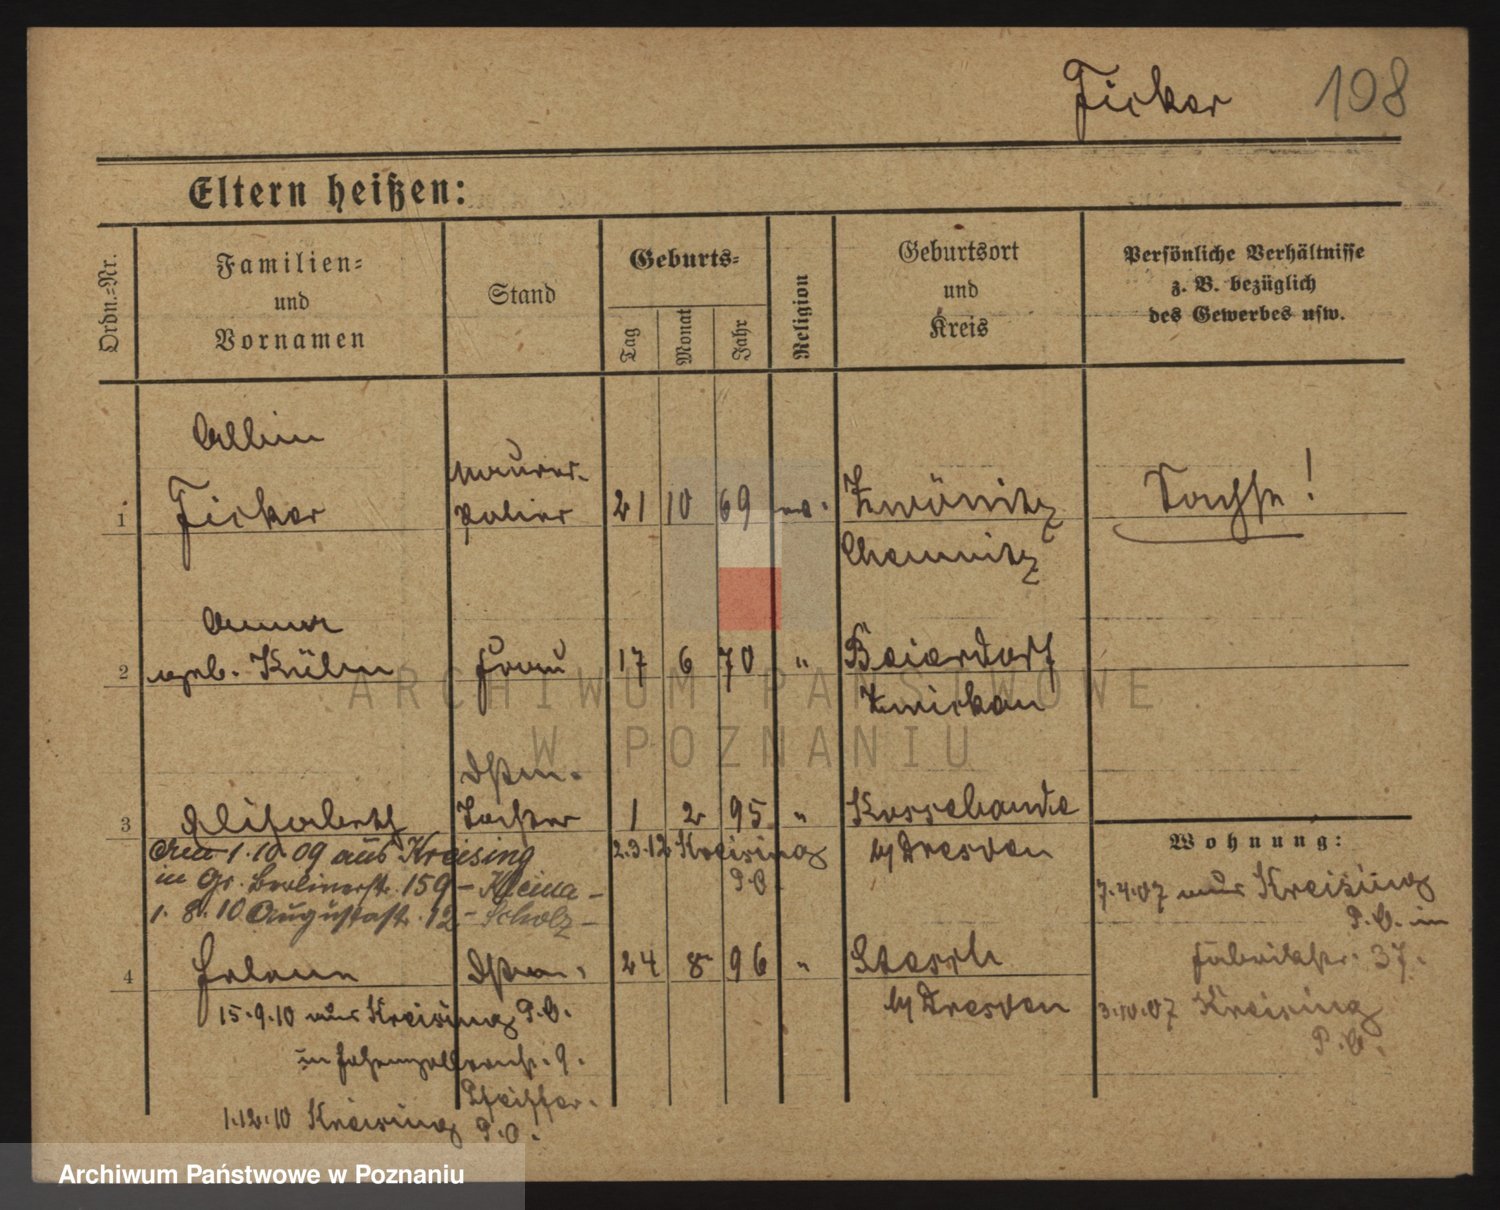 Ficker 198
Eltern heißen:
Ordn.-Nr.
Familien-
und
Vornamen
Stand
Geburts-
Tag
Monat
Jahr
Religion
Geburtsort
und
Kreis
Persönliche Verhältnisse
z. B. bezüglich
des Gewerbes usw.
Albin
1 Ficker Maurer-
polier 21 10 69 ev. Zwönitz
Chemnitz
Sachse!
Anna
2 geb. Kühn Frau 17 6 70 " Beierdorf
Zwickau
3 Elisabeth Tochter 1 2 95 " Kossebaude
by Dresden
1.10.09 aus Kreising
in Gr. Berlinerstr. 159 -
1.8.10 Augustastr. 12 - Scholz -
2.3.12 Kreising
P.O.
4 Helene 24 8 96 "
by Dresden
15.9.10 aus Kreising P.O.
in Hohenzollernstr. 9.
Pfeiffer.
1.12.10 Kreising P.O.
Wohnung:
7.4.07 aus Kreising
P.O. in
Fabrikstr. 37.
3.10.07 Kreising
P.O.
ARCHIWUM PAŃSTWOWE
W POZNANIU
Archiwum Państwowe w Poznaniu